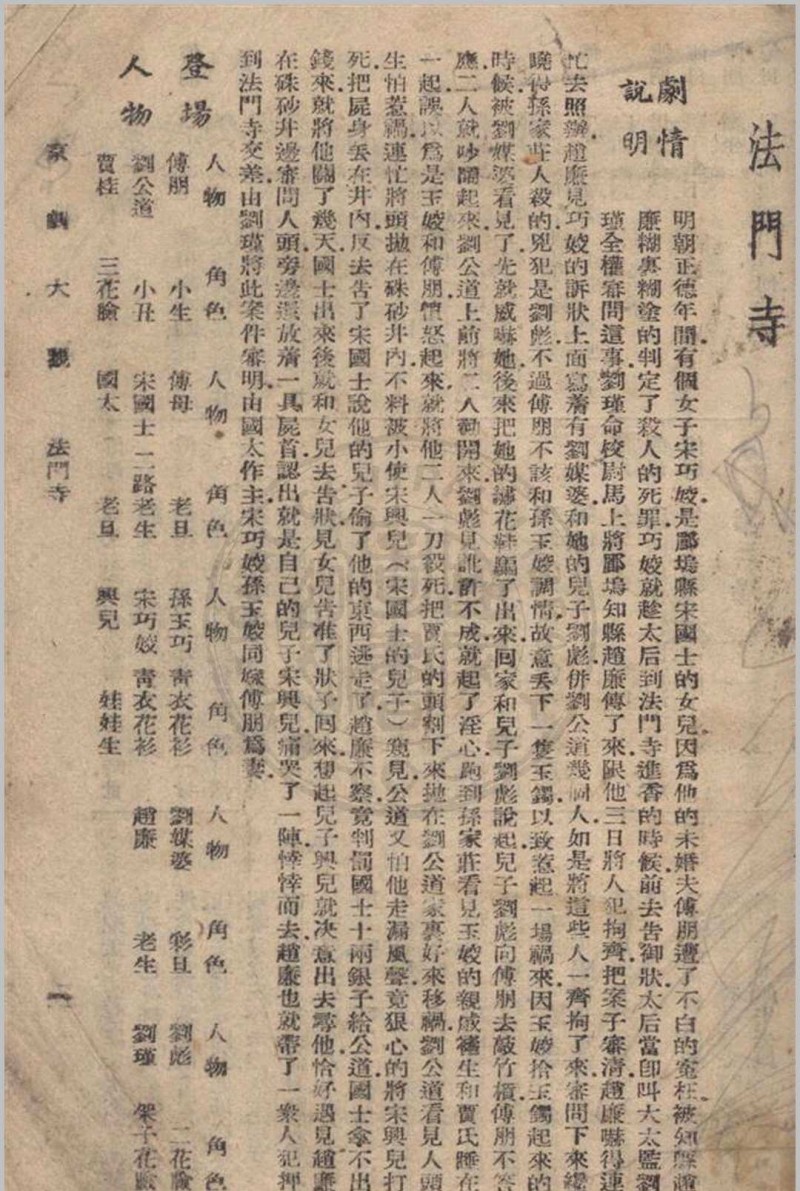 法門寺
劇情
說明
明朝正德年間有個女子宋巧姣是郿塢縣宋國士的女兒因爲他的未婚夫傅朋遭了不白的寃枉被知縣趙
廉糊裏糊塗的判定了殺人的死罪巧姣就趁太后到法門寺進香的時候前去告御狀太后當卽叫大太監劉
瑾全權審問這事劉瑾命校尉馬上將郿塢知縣趙廉傳了來限他三日將人犯拘齊把案子審清趙廉嚇得連
忙去照辦趙廉見巧姣的訴狀上面寫着有劉媒婆和她的兒子劉彪併劉公道幾個人如是將這些人一齊拘了來審問下來纔
曉得孫家莊人殺的兇犯是劉彪不過傅朋不該和孫玉姣調情故意丢下一隻玉鐲以致惹起一場禍來因玉姣拾玉鐲起來的
時候被劉媒婆看見了先就威嚇她後來把她的綉花鞋騙了出來回家和兒子劉彪說起兒子劉彪向傅朋去敲竹槓傅朋不答
應二人就吵鬧起來劉公道上前將二人勸開來劉彪見訛詐不成就起了淫心跑到孫家莊看見玉姣的親戚褚生和賈氏睡在
一起誤以爲是玉姣和傅朋憤怒起來就將他二人一刀殺死把賈氏的頭割下來拋在劉公道家裏好來移禍劉公道看見人頭
生怕惹禍連忙將頭拋在硃砂井內不料被小使宋興兒（宋國士的兒子）窺見公道又怕他走漏風聲竟狠心的將宋興兒打
死把屍身丢在井內反去告了宋國士說他的兒子偷了他的東西逃走了趙廉不察竟判罰國士十兩銀子給公道國士拿不出
錢來就將他關了幾天國士出來後就和女兒去告狀見女兒告准了狀子回來想起兒子興兒就決意出去尋他恰好遇見趙廉
在硃砂井邊審問人頭旁邊還放着一具屍首認出就是自己的兒子宋興兒痛哭了一陣悻悻而去趙廉也就帶了一衆人犯押
到法門寺交差由劉瑾將此案件審明由國太作主宋巧姣孫玉姣同嫁傅朋爲妻
登場
人物
人物 角色 人物 角色 人物 角色 人物 角色 人物 角色
傅朋 小生 傅母 老旦 孫玉巧 青衣花衫 劉媒婆 彩旦 劉彪 二花臉
劉公道 小丑 宋國士 二路老生 宋巧姣 青衣花衫 趙廉 老生 劉瑾 架子花臉
賈桂 三花臉 國太 老旦 興兒 娃娃生
京劇大觀 法門寺 一